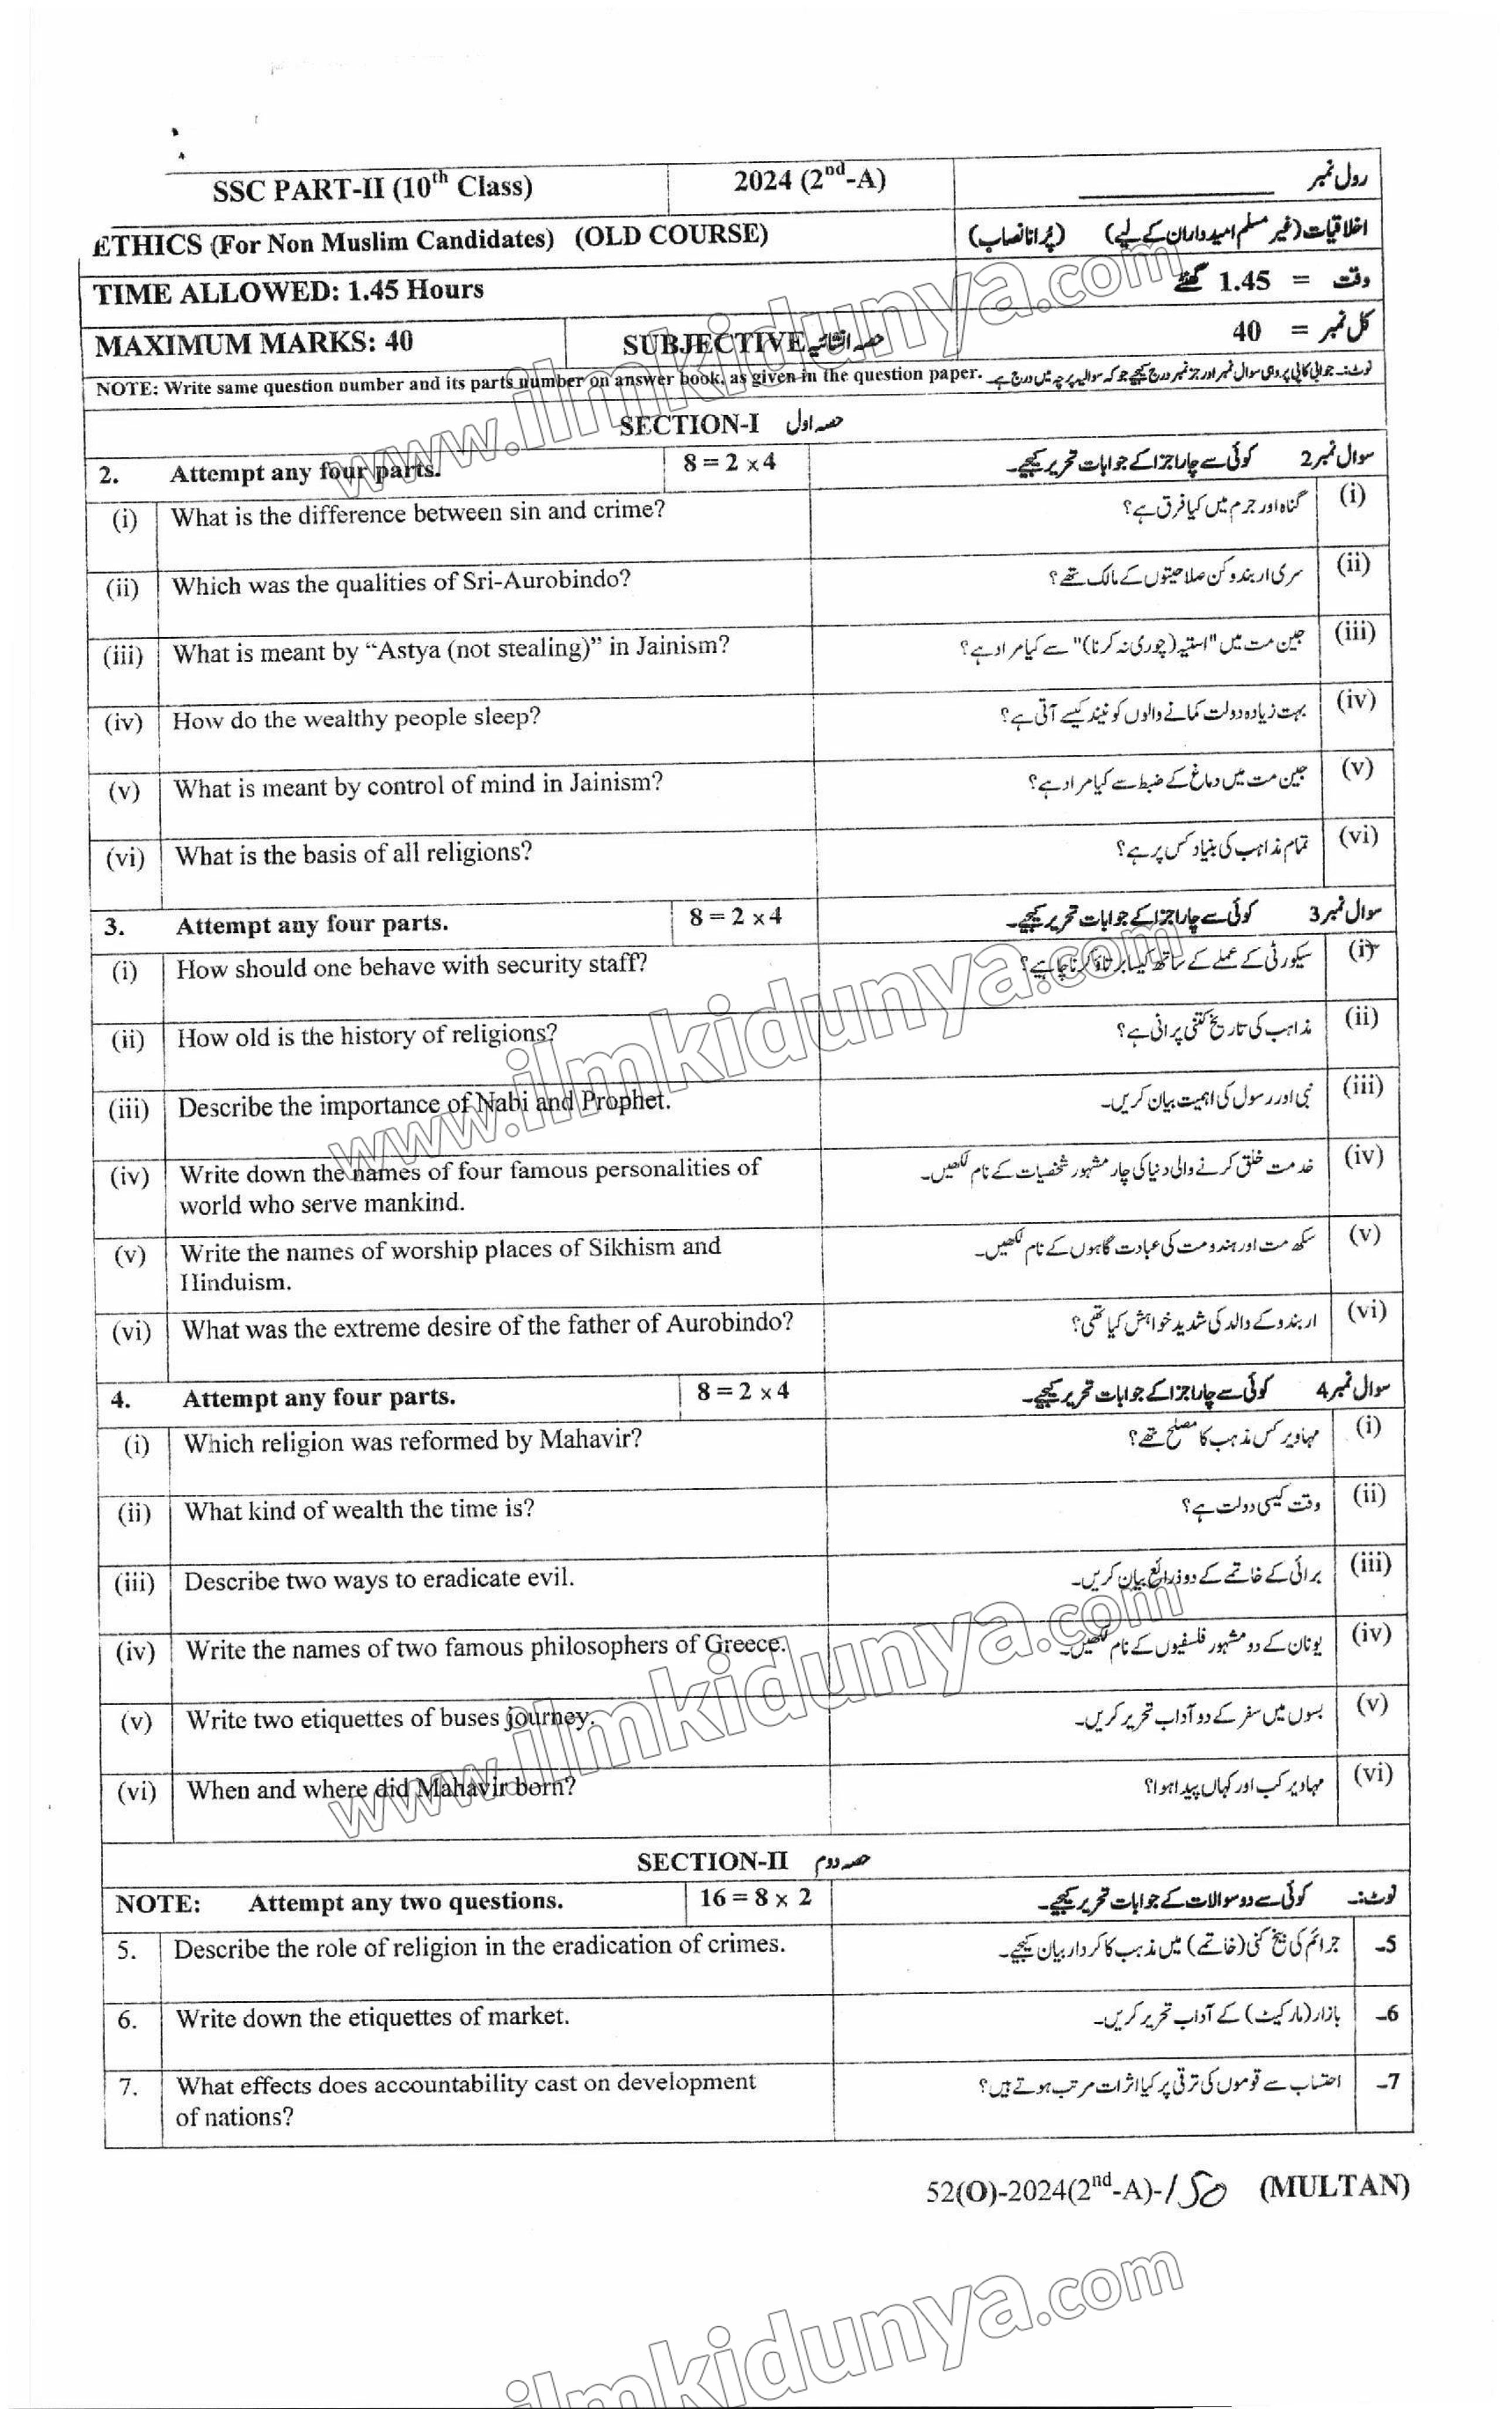 SSC PART-II (10th Class) 2024 (2nd-A) رول نمبر
ETHICS (For Non Muslim Candidates) (OLD COURSE) اخلاقیات (غیر مسلم امیدواران کے لیے) (پُرانا نصاب)
TIME ALLOWED: 1.45 Hours وقت = 1.45 گھنٹے
MAXIMUM MARKS: 40 SUBJECTIVE حصہ انشائیہ کل نمبر = 40
NOTE: Write same question number and its parts number on answer book, as given in the question paper. نوٹ:۔ جوابی کاپی پر وہی سوال نمبر اور جز نمبر درج کیجیے جو کہ سوالیہ پرچہ میں درج ہے۔
SECTION-I حصہ اول
2. Attempt any four parts. 8 = 2 x 4 سوال نمبر 2 کوئی سے چار اجزا کے جوابات تحریر کیجیے۔
(i) What is the difference between sin and crime? گناہ اور جرم میں کیا فرق ہے؟ (i)
(ii) Which was the qualities of Sri-Aurobindo? سری اربندو کن صلاحیتوں کے مالک تھے؟ (ii)
(iii) What is meant by “Astya (not stealing)” in Jainism? جین مت میں "استیہ (چوری نہ کرنا)" سے کیا مراد ہے؟ (iii)
(iv) How do the wealthy people sleep? بہت زیادہ دولت کمانے والوں کو نیند کیسے آتی ہے؟ (iv)
(v) What is meant by control of mind in Jainism? جین مت میں دماغ کے ضبط سے کیا مراد ہے؟ (v)
(vi) What is the basis of all religions? تمام مذاہب کی بنیاد کس پر ہے؟ (vi)
3. Attempt any four parts. 8 = 2 x 4 سوال نمبر 3 کوئی سے چار اجزا کے جوابات تحریر کیجیے۔
(i) How should one behave with security staff? سیکورٹی کے عملے کے ساتھ کیسا برتاؤ کرنا چاہیے؟ (i)
(ii) How old is the history of religions? مذاہب کی تاریخ کتنی پرانی ہے؟ (ii)
(iii) Describe the importance of Nabi and Prophet. نبی اور رسول کی اہمیت بیان کریں۔ (iii)
(iv) Write down the names of four famous personalities of خدمت خلق کرنے والی دنیا کی چار مشہور شخصیات کے نام لکھیں۔ (iv)
world who serve mankind.
(v) Write the names of worship places of Sikhism and سکھ مت اور ہندومت کی عبادت گاہوں کے نام لکھیں۔ (v)
Hinduism.
(vi) What was the extreme desire of the father of Aurobindo? اربندو کے والد کی شدید خواہش کیا تھی؟ (vi)
4. Attempt any four parts. 8 = 2 x 4 سوال نمبر 4 کوئی سے چار اجزا کے جوابات تحریر کیجیے۔
(i) Which religion was reformed by Mahavir? مہاویر کس مذہب کا مصلح تھے؟ (i)
(ii) What kind of wealth the time is? وقت کیسی دولت ہے؟ (ii)
(iii) Describe two ways to eradicate evil. برائی کے خاتمے کے دو ذرائع بیان کریں۔ (iii)
(iv) Write the names of two famous philosophers of Greece. یونان کے دو مشہور فلسفیوں کے نام لکھیں۔ (iv)
(v) Write two etiquettes of buses journey. بسوں میں سفر کے دو آداب تحریر کریں۔ (v)
(vi) When and where did Mahavir born? مہاویر کب اور کہاں پیدا ہوا؟ (vi)
SECTION-II حصہ دوم
NOTE: Attempt any two questions. 16 = 8 x 2 نوٹ:۔ کوئی سے دو سوالات کے جوابات تحریر کیجیے۔
5. Describe the role of religion in the eradication of crimes. جرائم کی بیخ کنی (خاتمے) میں مذہب کا کردار بیان کیجیے۔ 5۔
6. Write down the etiquettes of market. بازار (مارکیٹ) کے آداب تحریر کریں۔ 6۔
7. What effects does accountability cast on development احتساب سے قوموں کی ترقی پر کیا اثرات مرتب ہوتے ہیں؟ 7۔
of nations?
52(O)-2024(2nd-A)-150 (MULTAN)
www.ilmkidunya.com
www.ilmkidunya.com
www.ilmkidunya.com
ilmkidunya.com